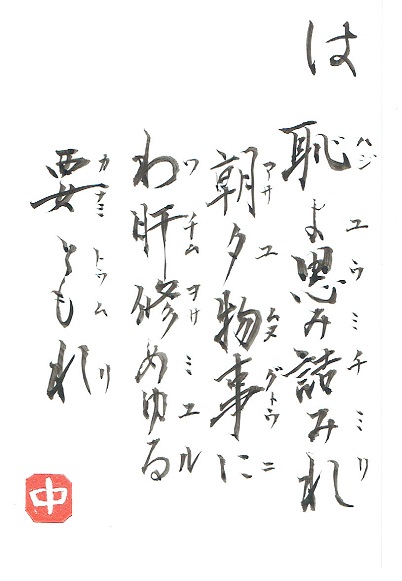 は
恥よ思み詰みれ
ハジユウミチミリ
朝夕物事に
アサユムヌグトウニ
わ肝修めゆる
ワチムヲサミユル
要ともれ
カナミトウムリ
中